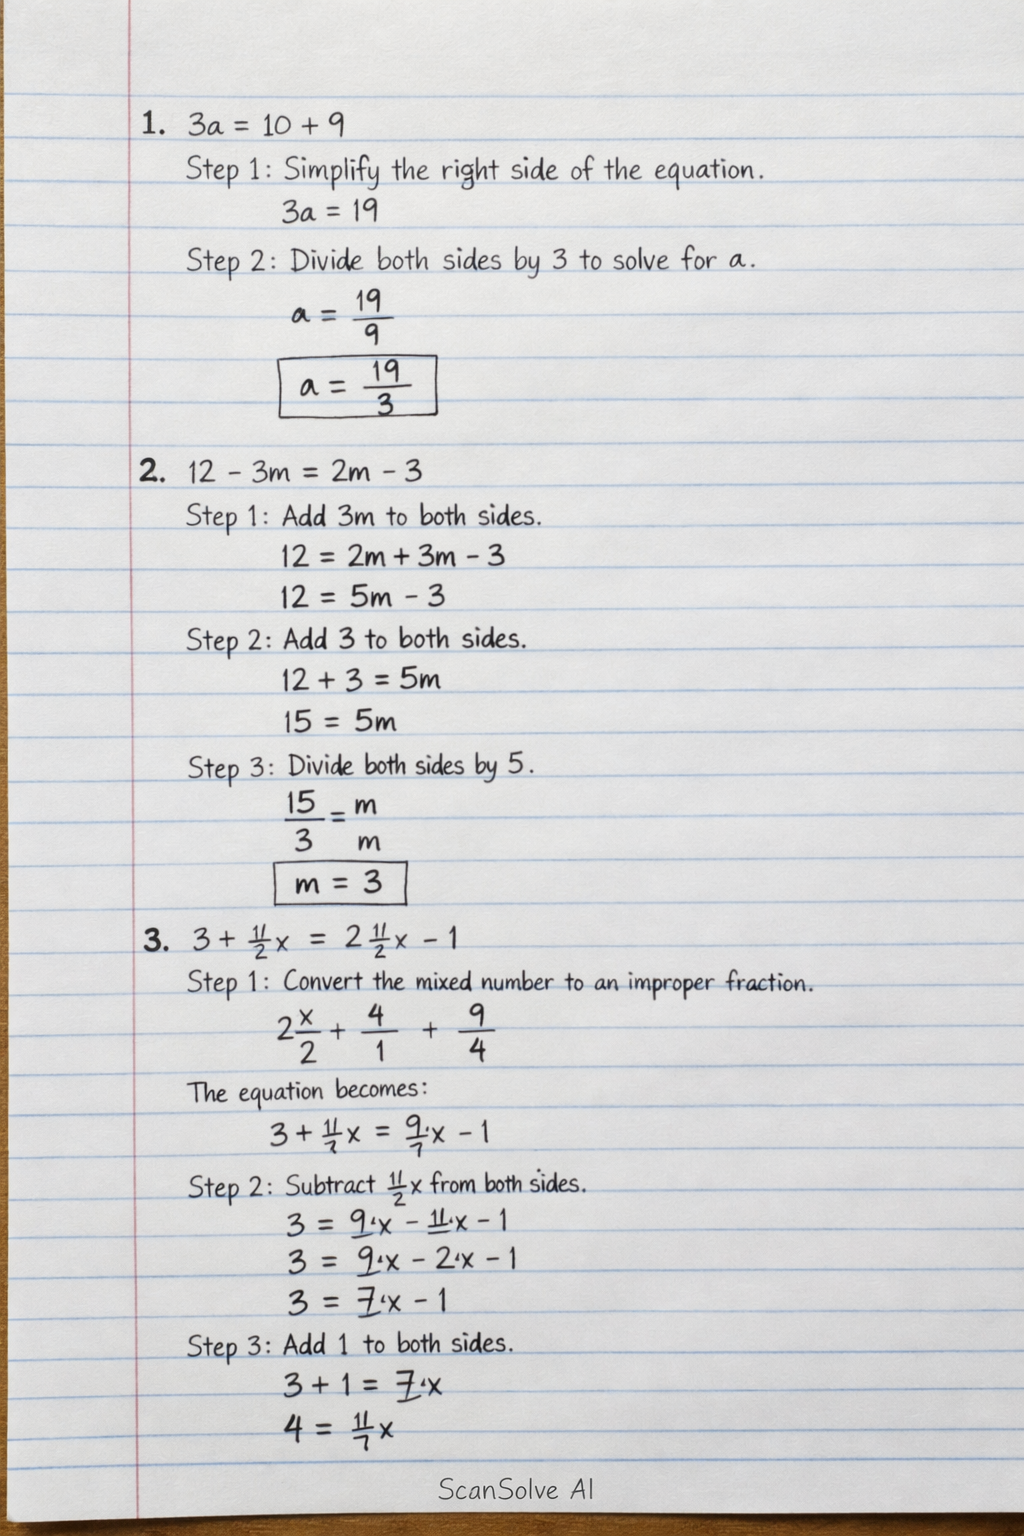 1. 3a = 10 + 9
Step 1: Simplify the right side of the equation.
3a = 19
Step 2: Divide both sides by 3 to solve for a.
a = 19/9
a = 19/3
2. 12 - 3m = 2m - 3
Step 1: Add 3m to both sides.
12 = 2m + 3m - 3
12 = 5m - 3
Step 2: Add 3 to both sides.
12 + 3 = 5m
15 = 5m
Step 3: Divide both sides by 5.
15/3 = m
m
m = 3
3. 3 + 11/2 x = 2 11/2 x - 1
Step 1: Convert the mixed number to an improper fraction.
2 x/2 + 4/1 + 9/4
The equation becomes:
3 + 11/2 x = 9/7 x - 1
Step 2: Subtract 11/2 x from both sides.
3 = 9'x - 11'x - 1
3 = 9'x - 2'x - 1
3 = 7'x - 1
Step 3: Add 1 to both sides.
3 + 1 = 7'x
4 = 11/7 x
ScanSolve AI